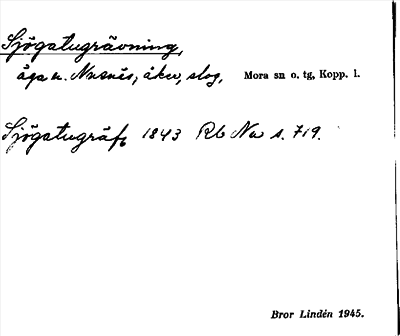 Sjögatugrävning,
åga u. Nusnäs, åker, slog, Mora sn o. tg, Kopp. l.
Sjögatugräf 1843 Rb Na s. 719.
Bror Lindén 1945.